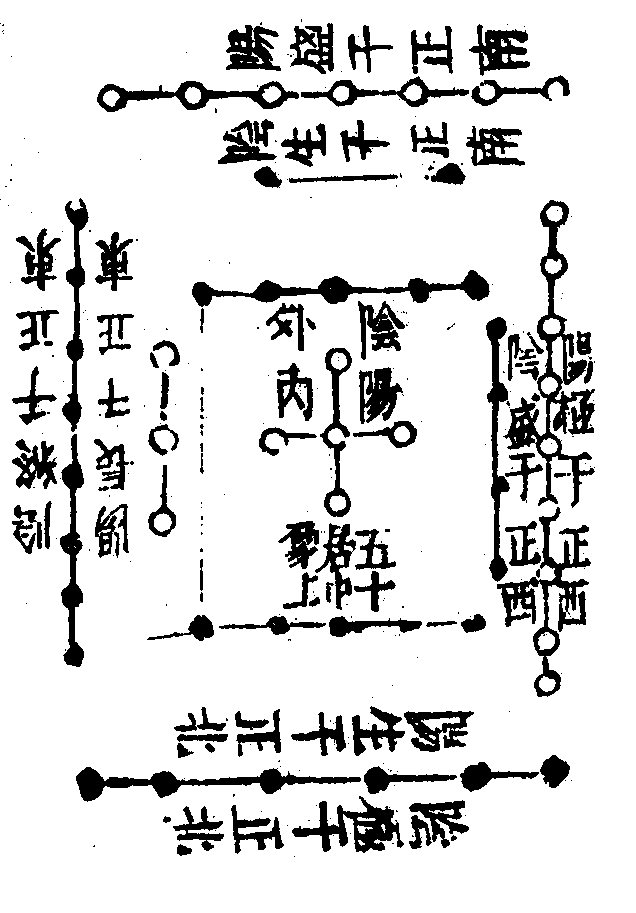 陽盛于正南
陰生于正南
陰于正東
陽長于正東
陰外
陽內
五十居中
陰盛于正西
陽極于正西
陽生于正北
陰于正北